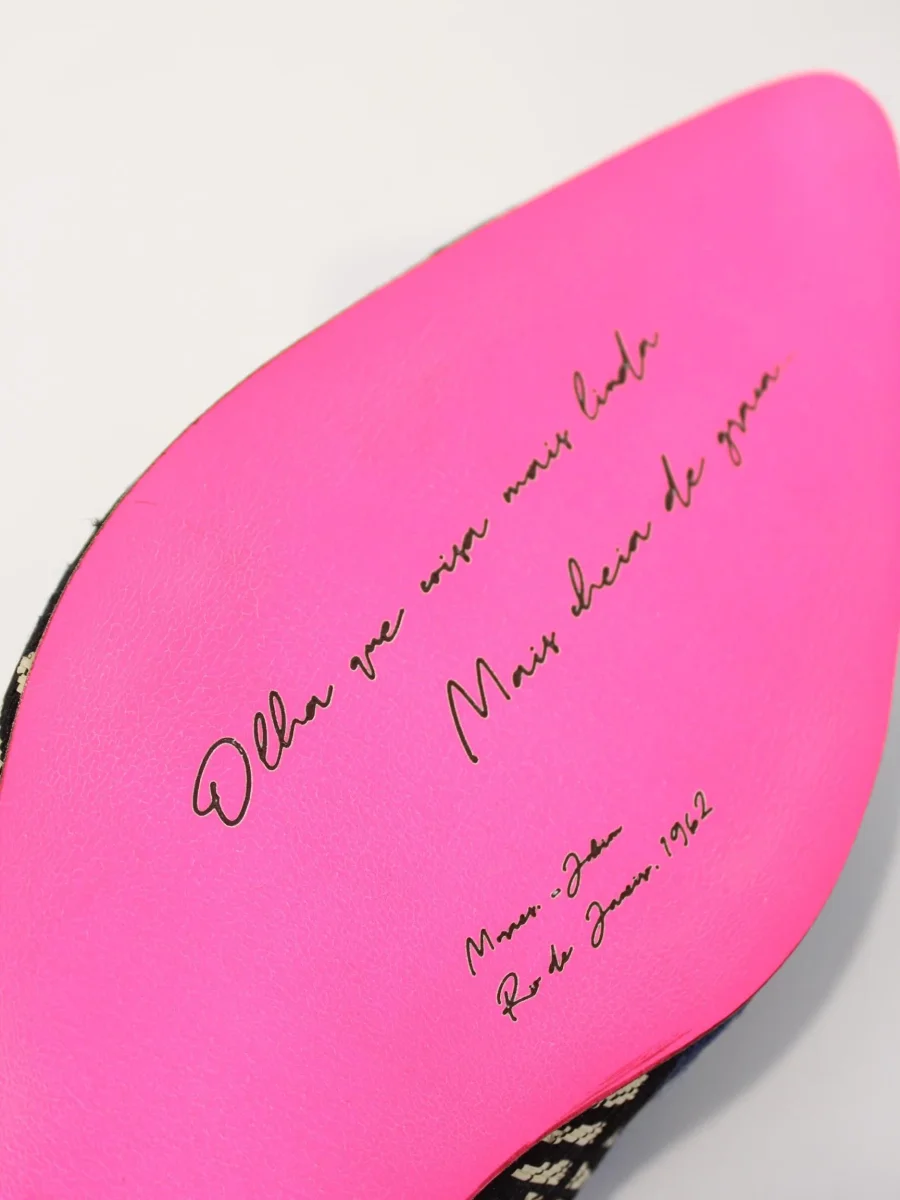 Olha que coisa mais linda
Mais cheia de graça
Moraes. e Jobim
Rio de Janeiro. 1962